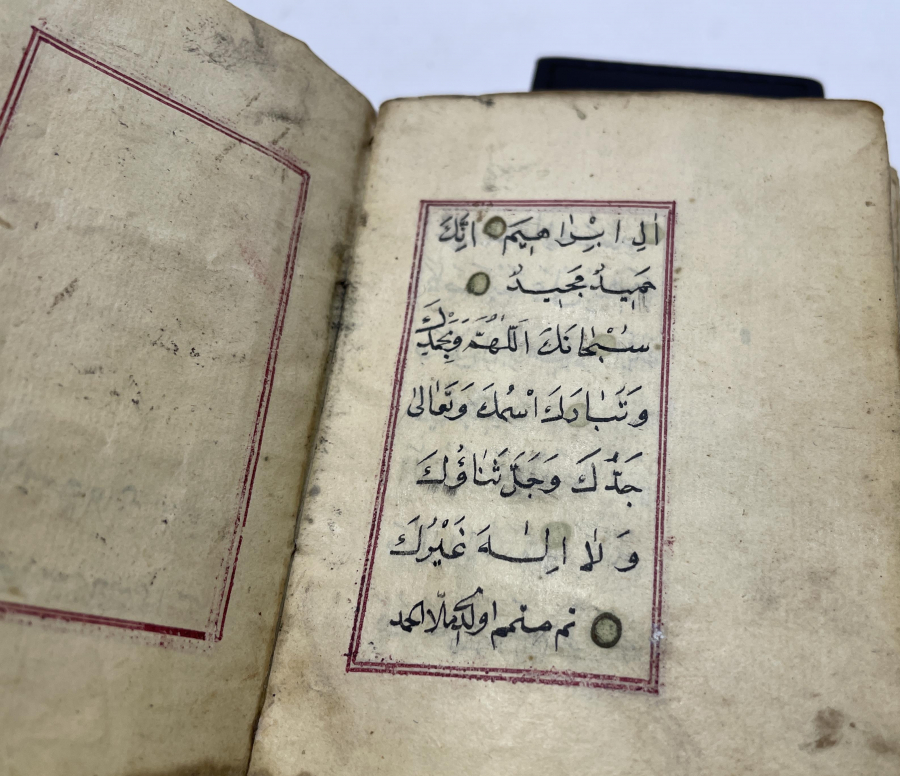 اٰلِ اِبْرٰاهِيمَ اِنَّكَ
حَمِيدٌ مَجِيدٌ
سُبْحَانَكَ اَللّٰهُمَّ وَبِحَمْدِكَ
وَتَبَارَكَ اسْمُكَ وَتَعَالٰى
جَدُّكَ وَجَلَّ ثَنَاؤُكَ
وَلَا اِلٰهَ غَيْرُكَ
تم